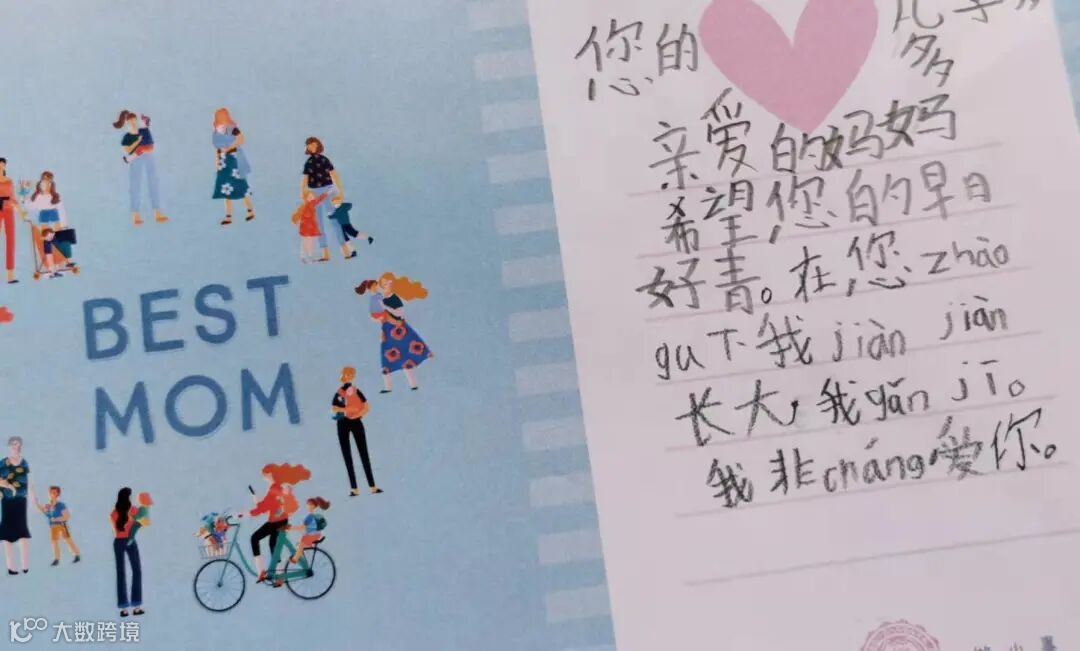 BEST
MOM
您的
多
亲爱的妈妈
希望您的早日
好青。在您zhào
gu下我jiàn jiàn
长大,我gǎn jī。
我非cháng爱你。
大数跨境